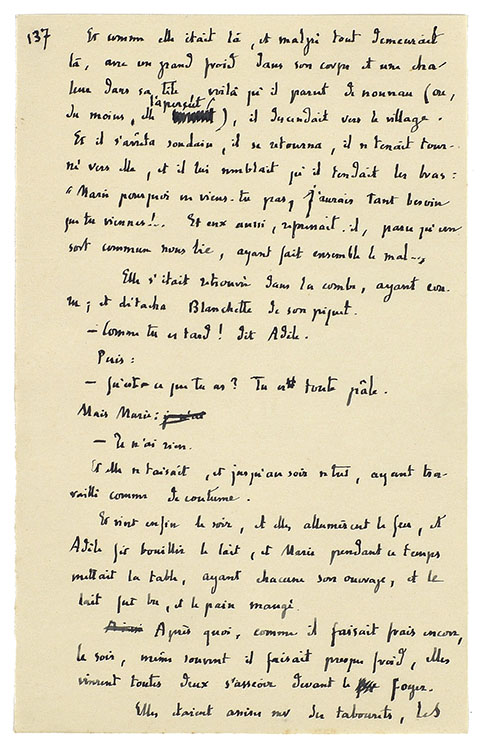 137 Et comme elle était là, et malgré tout demeurait
là, avec un grand froid dans son corps et une cha-
leur dans sa tête voilà qu'il parut de nouveau (ou,
du moins, elle l'aperçut), il descendait vers le village.
Et il s'arrêta soudain, il se retourna, il se tenait tour-
né vers elle, et il lui semblait qu'il tendait les bras :
"Marie pourquoi ne viens-tu pas, j'aurais tant besoin
que tu viennes!.. Et eux aussi, reprenait-il, parce qu'un
sort commun nous lie, ayant fait ensemble le mal...
Elle s'était retrouvée dans la combe, ayant cou-
ru ; et détacha Blanchette de son piquet.
– Comme tu es tard ! dit Adèle.
Puis :
– Qu'est-ce que tu as ? Tu es toute pâle.
Mais Marie :
– Je n'ai rien.
Et elle se taisait, et jusqu'au soir se tut, ayant tra-
vaillé comme de coutume.
Et vint enfin le soir, et elles allumèrent le feu, et
Adèle fit bouillir le lait, et Marie pendant ce temps
mettait la table, ayant chacune son ouvrage, et le
lait fut bu, et le pain mangé.
Après quoi, comme il faisait frais encore,
le soir, même souvent il faisait presque froid, elles
vinrent toutes deux s'asseoir devant le foyer.
Elles étaient assises sur des tabourets, les